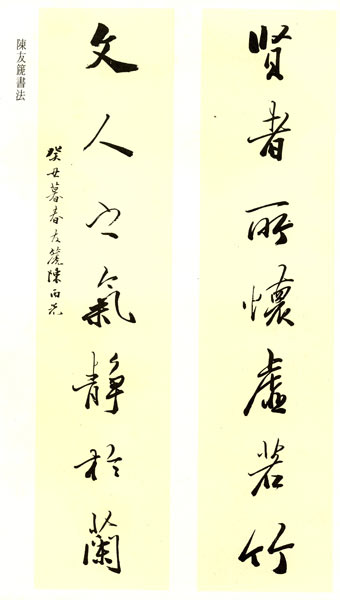 賢者所懷虛若竹
文人之氣靜於蘭
癸丑暮春友陳丙光
陳友書法